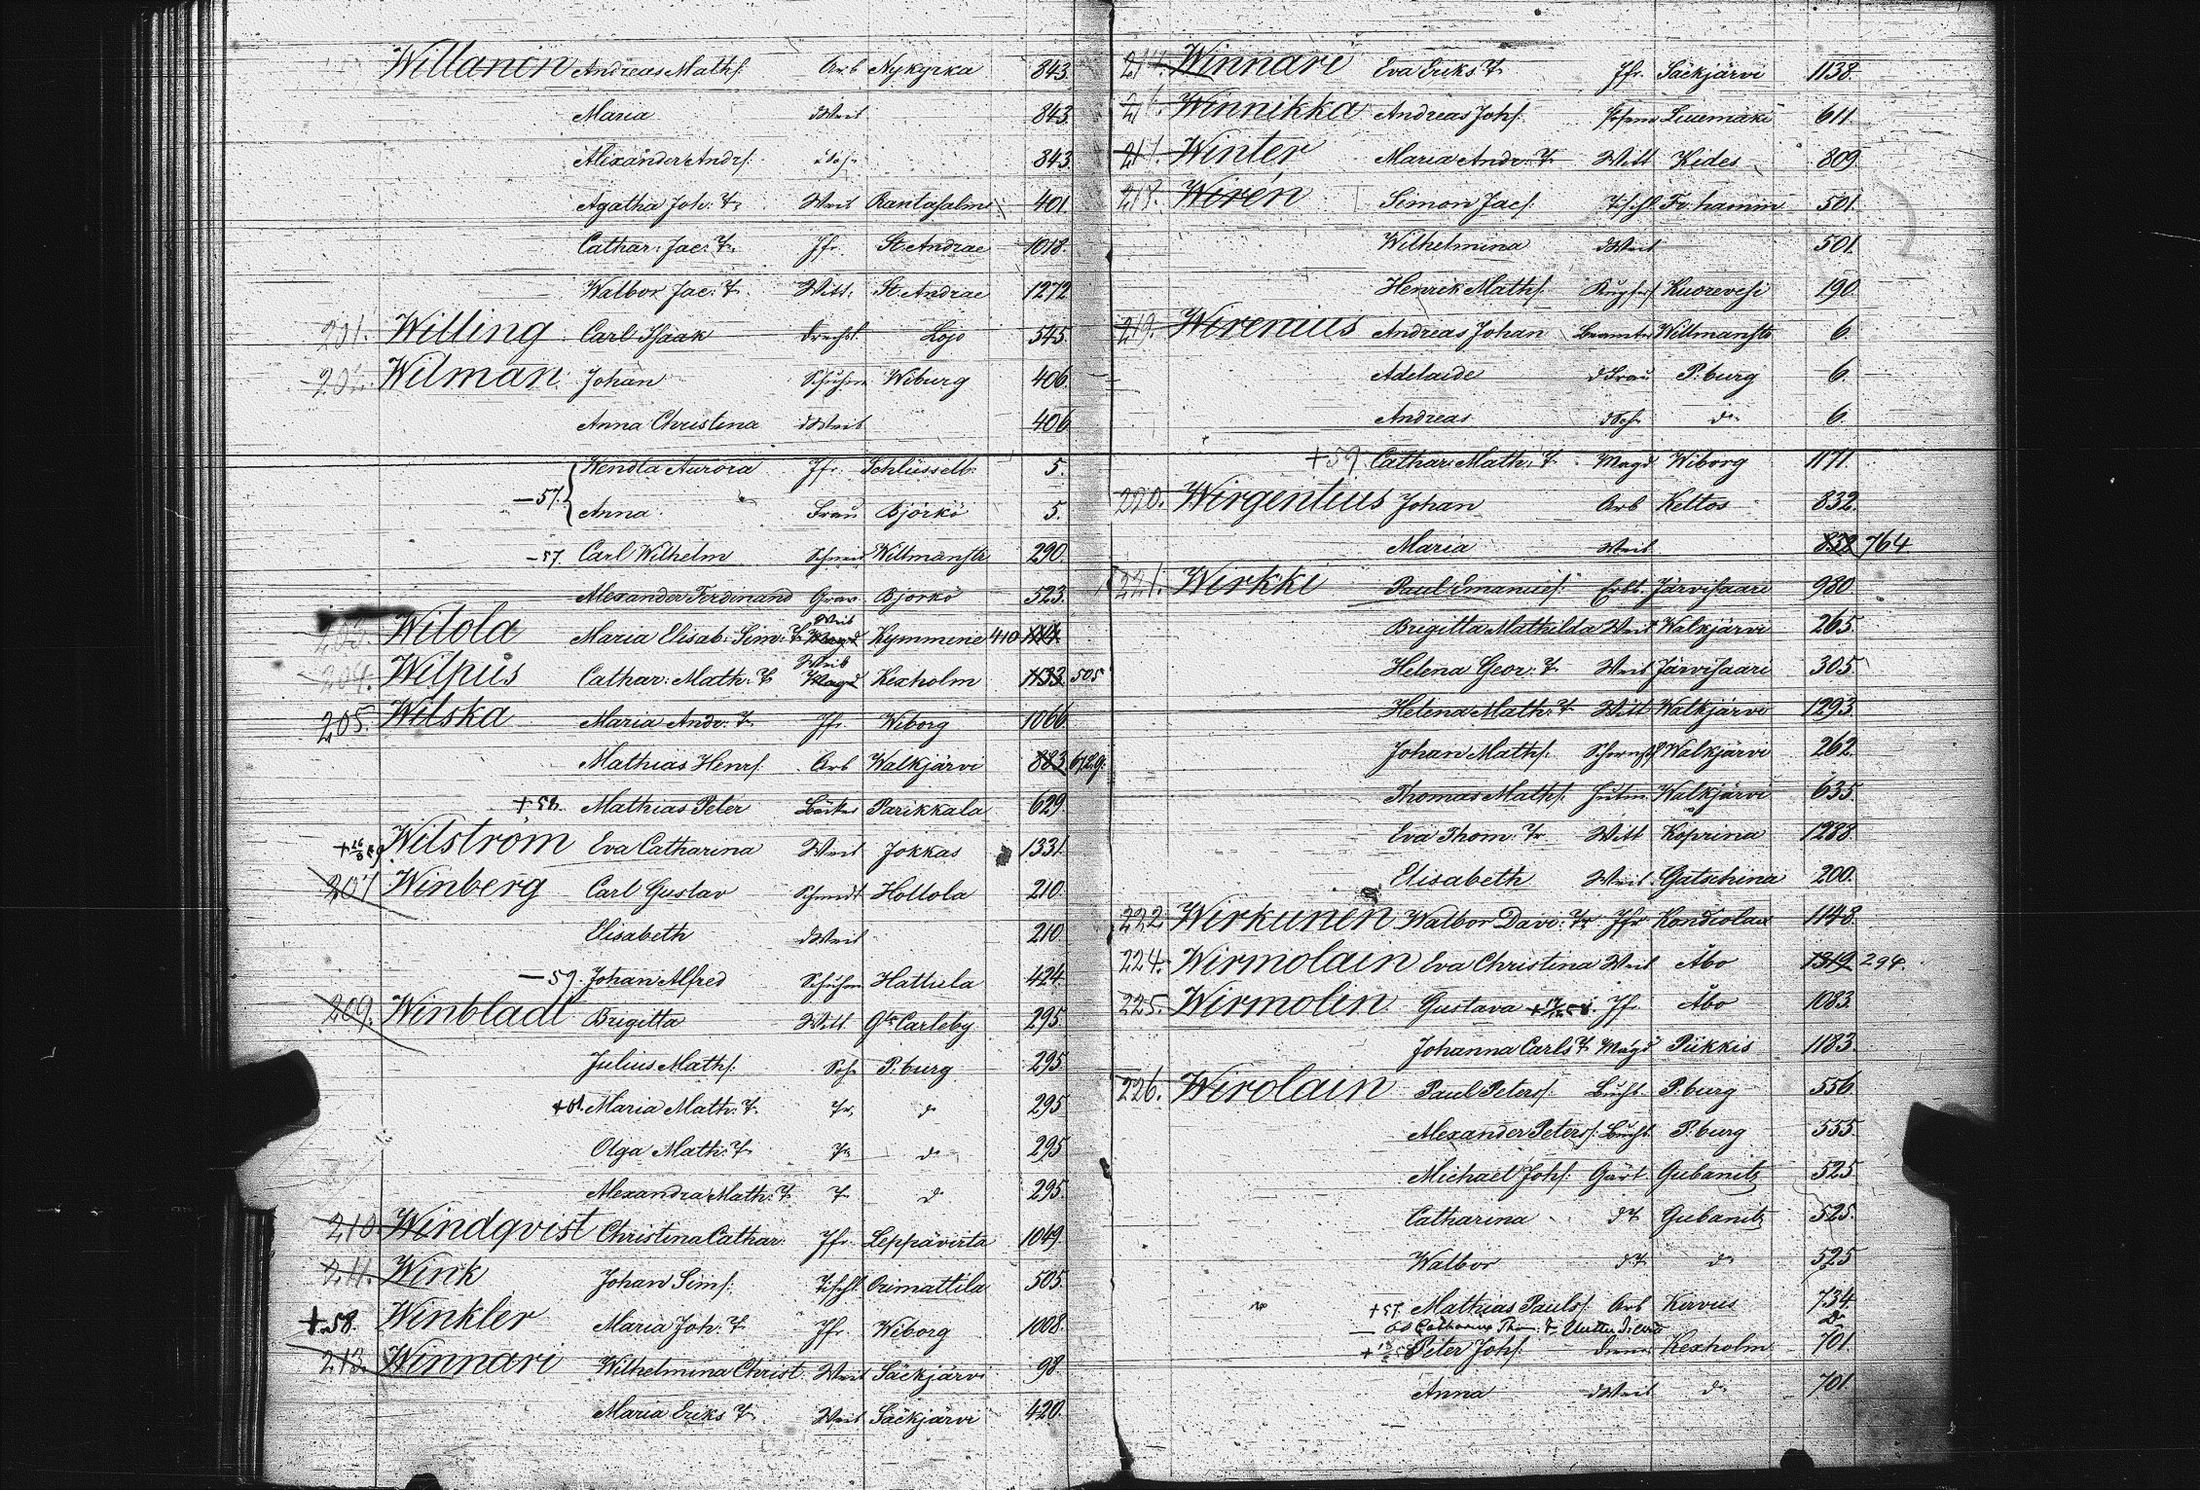 Willanen Andreas Maths. Arb Nykyrka 843.
Maria dWeib 843.
Alexander Andrs. dSohn 843.
Agatha Joh: Tr Weib Rantasalmi 401.
Cathar: Jac: Tr. Jfr. St. Andrae 1018.
Walbor Jac: T. Witt: St. Andrae 1272
201. Willing Carl Isaak Drechsl. Lojo 545.
202. Wilman Johan Schuhm Wiburg 406.
Anna Christina dWeib 406
Hendla Aurora Jfr. Schlüsselb: 5.
—57. Anna Frau Björkö 5.
—57. Carl Wilhelm Schneid Willmanstr 290.
Alexander Ferdinand Grav. Björkö 523.
203. Wilola Maria Elisab: Sim: T. Weib Magd Kymmene 410
204. Wilpus Cathar: Math: T Weib Magd Kexholm 1133 505
205. Wilska Maria Andr: T. Jfr. Wiborg 1066.
Mathias Henrs. Arb Walkjärvi 883
+58. Mathias Peter Bäcker Parikkala 629.
Wilström Eva Catharina Weib Jokkas 1331.
207 Winberg Carl Gustav Schmidt Hollola 210.
Elisabeth dWeib 210.
—59. Johan Alfred Schuhm Hattula 424.
209. Winbladt Brigitta Witt Gla Carleby 295.
Julius Maths. Sohn P.burg 295.
+61. Maria Math: T. Tr. do 295
Olga Math: T. Tr do 295
Alexandra Math: T. T do 295.
210 Windqvist Christina Cathar: Jfr. Leppävirta 1049.
211. Wink Johan Sims. Tischl Orimattila 505.
+58. Winkler Maria Joh: T. Jfr. Wiborg 1008.
213. Winnari Wilhelmina Christ. Weib Säckjärvi 98
Maria Eriks T. Weib Säckjärvi 420.
Winnari Eva Eriks T. Jfr. Säckjärvi 1138.
216. Winnikka Andreas Johs. Liuemäki 611.
217. Winter Maria Andr: T. Witt Kides 809.
218. Wirén Simon Jacs. Tischl Fr:hamn 501.
Wilhelmina dWeib 501.
Henrik Maths. Kupfers Kuorevesi 190.
219. Wirenius Andreas Johan Beamter Willmanstr 6.
Adelaide dFrau P.burg 6.
Andreas dSohn do 6.
+59. Cathar: Math: T. Magd Wiborg 1171.
220. Wirgentius Johan Arb Keltos 832.
Maria Weib 832 764
221. Wirkki Paul Emanuels. Erbt. Järvisaari 980.
Brigitta Mathilda Weib Walkjärvi 265.
Helena Geor: T. Weib Järvisaari 305.
Helena Math: T. Witt Walkjärvi 1293.
Johan Maths. Walkjärvi 262.
Thomas Maths. Walkjärvi 635.
Eva Thom: Tr. Witt Koprina 1288.
Elisabeth Weib Gatschina 200.
222. Wirkunen Walbor Davi: Tr Jfr Kondiolax 1148.
224. Wirmolain Eva Christina Weib Åbo 1319 294.
225. Wirmolin Gustava Jfr. Åbo 1083.
Johanna Carls T. Magd Piikkis 1183.
226. Wirolain Paul Peters. Buchb. P.burg 556.
Alexander Peters. Buchb P.burg 555.
Michael Johs. Gärt. Gubanitz 525.
Catharina dT Gubanitz 525.
Walbor dT do 525
+57. Mathias Pauls. Arb Kirvus 734.
—60 Catharina Tho: T. do
Peter Johs. Diener Kexholm 701.
Anna dWeib do 701.